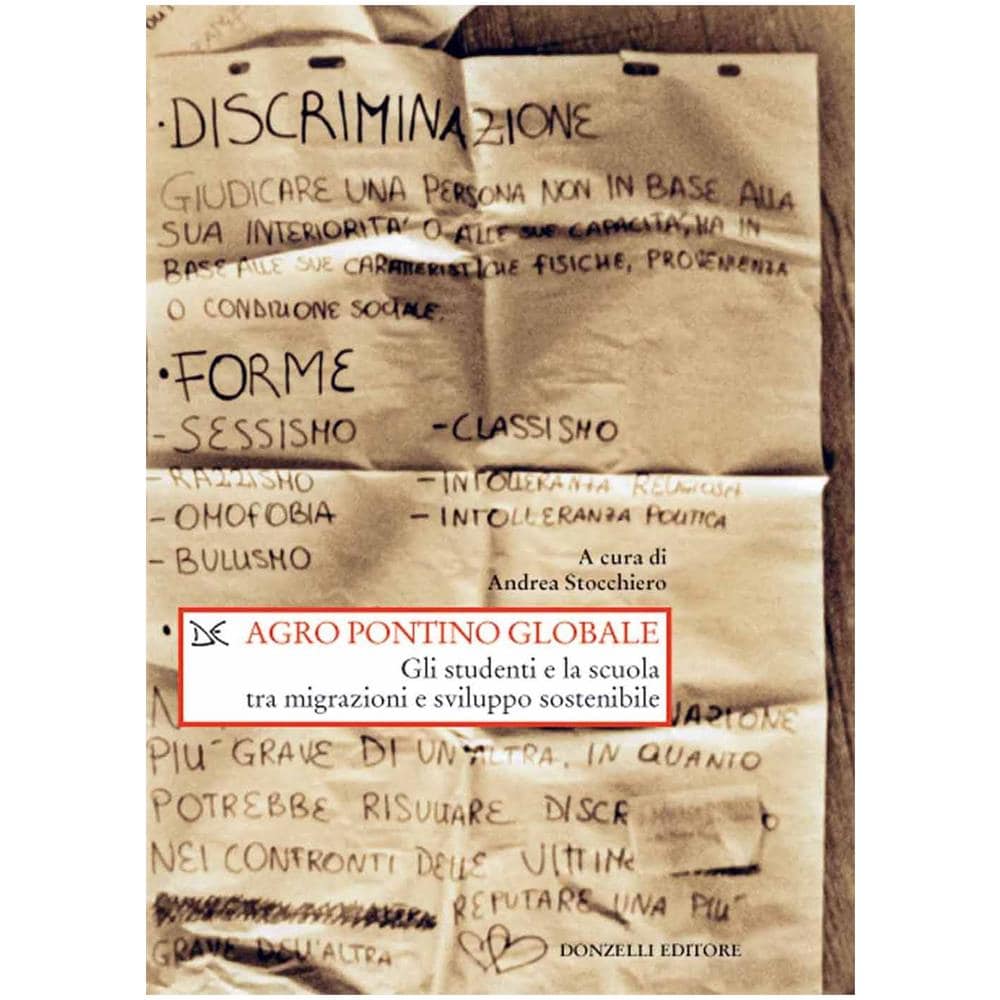 · DISCRIMINAZIONE
GIUDICARE UNA PERSONA NON IN BASE ALLA
SUA INTERIORITA' O ALLE SUE CAPACITA', MA IN
BASE ALLE SUE CARATTERISTICHE FISICHE, PROVENIENZA
O CONDIZIONE SOCIALE.
· FORME
- SESSISMO - CLASSISMO
- RAZZISMO - INTOLLERANZA RELIGIOSA
- OMOFOBIA - INTOLLERANZA POLITICA
- BULLISMO
A cura di
Andrea Stocchiero
DE AGRO PONTINO GLOBALE
Gli studenti e la scuola
tra migrazioni e sviluppo sostenibile
PIU' GRAVE DI UN'ALTRA, IN QUANTO
POTREBBE RISULTARE DISCR
NEI CONFRONTI DELLE VITTIME
REPUTARE UNA PIU'
GRAVE DELL'ALTRA
DONZELLI EDITORE